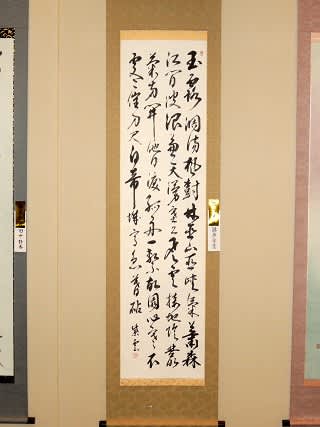 玉露凋傷楓樹林巫山巫峽氣蕭森
江間波浪兼天湧塞上風雲接地陰叢
菊両開他日淚孤舟一繋故園心寒衣
處々催刀尺白帝城高急暮砧 紫雲